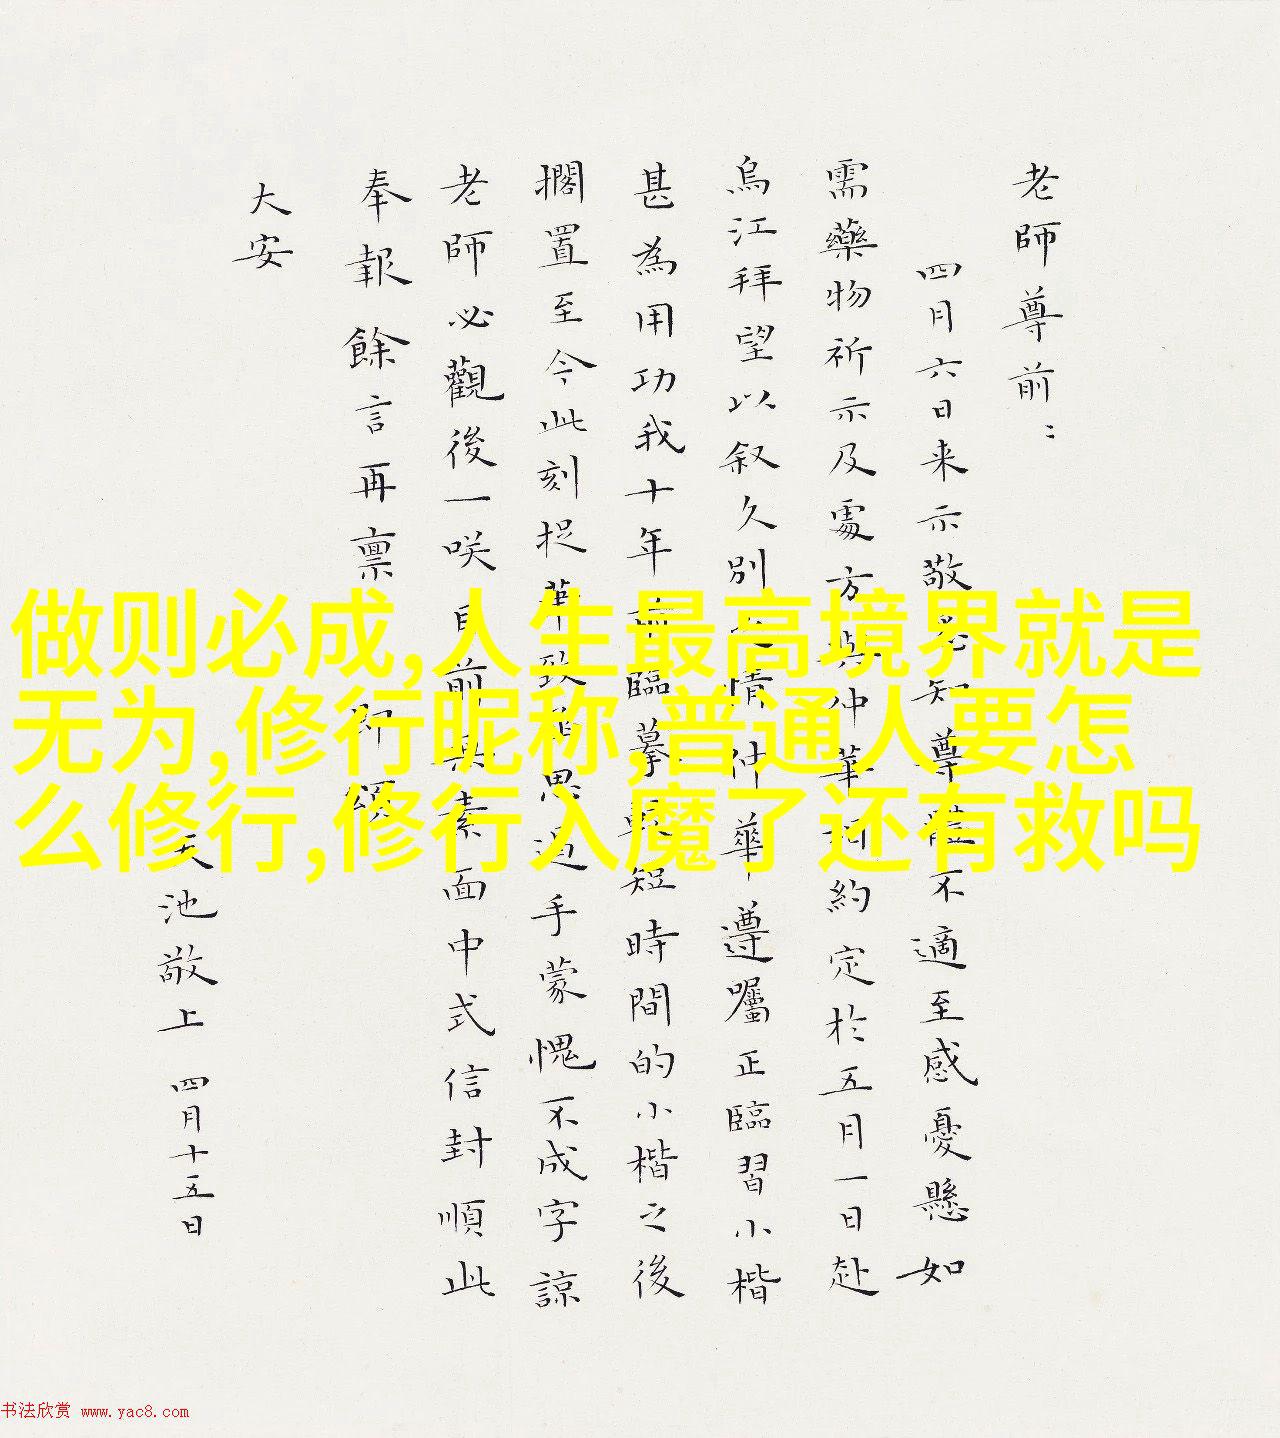 老師尊前：
四月六日来示敬必知尊體不適至感憂懸如
需藥物祈示及處方與仲華約定於五月一日赴
烏江拜望以叙久別之情仲華遵囑正臨習小楷
甚為用功我十年前臨摹短時間的小楷之後
擱置至今此刻捉筆致思過手蒙愧不成字諒
老師必觀後一咲目前與素面中式信封順此
奉報餘言再禀即頌
大安
天池敬上 四月十五日
做则必成,人生最高境界就是
无为,修行昵称,普通人要怎
么修行,修行入魔了还有救吗
书法欣赏 www.yac8.com